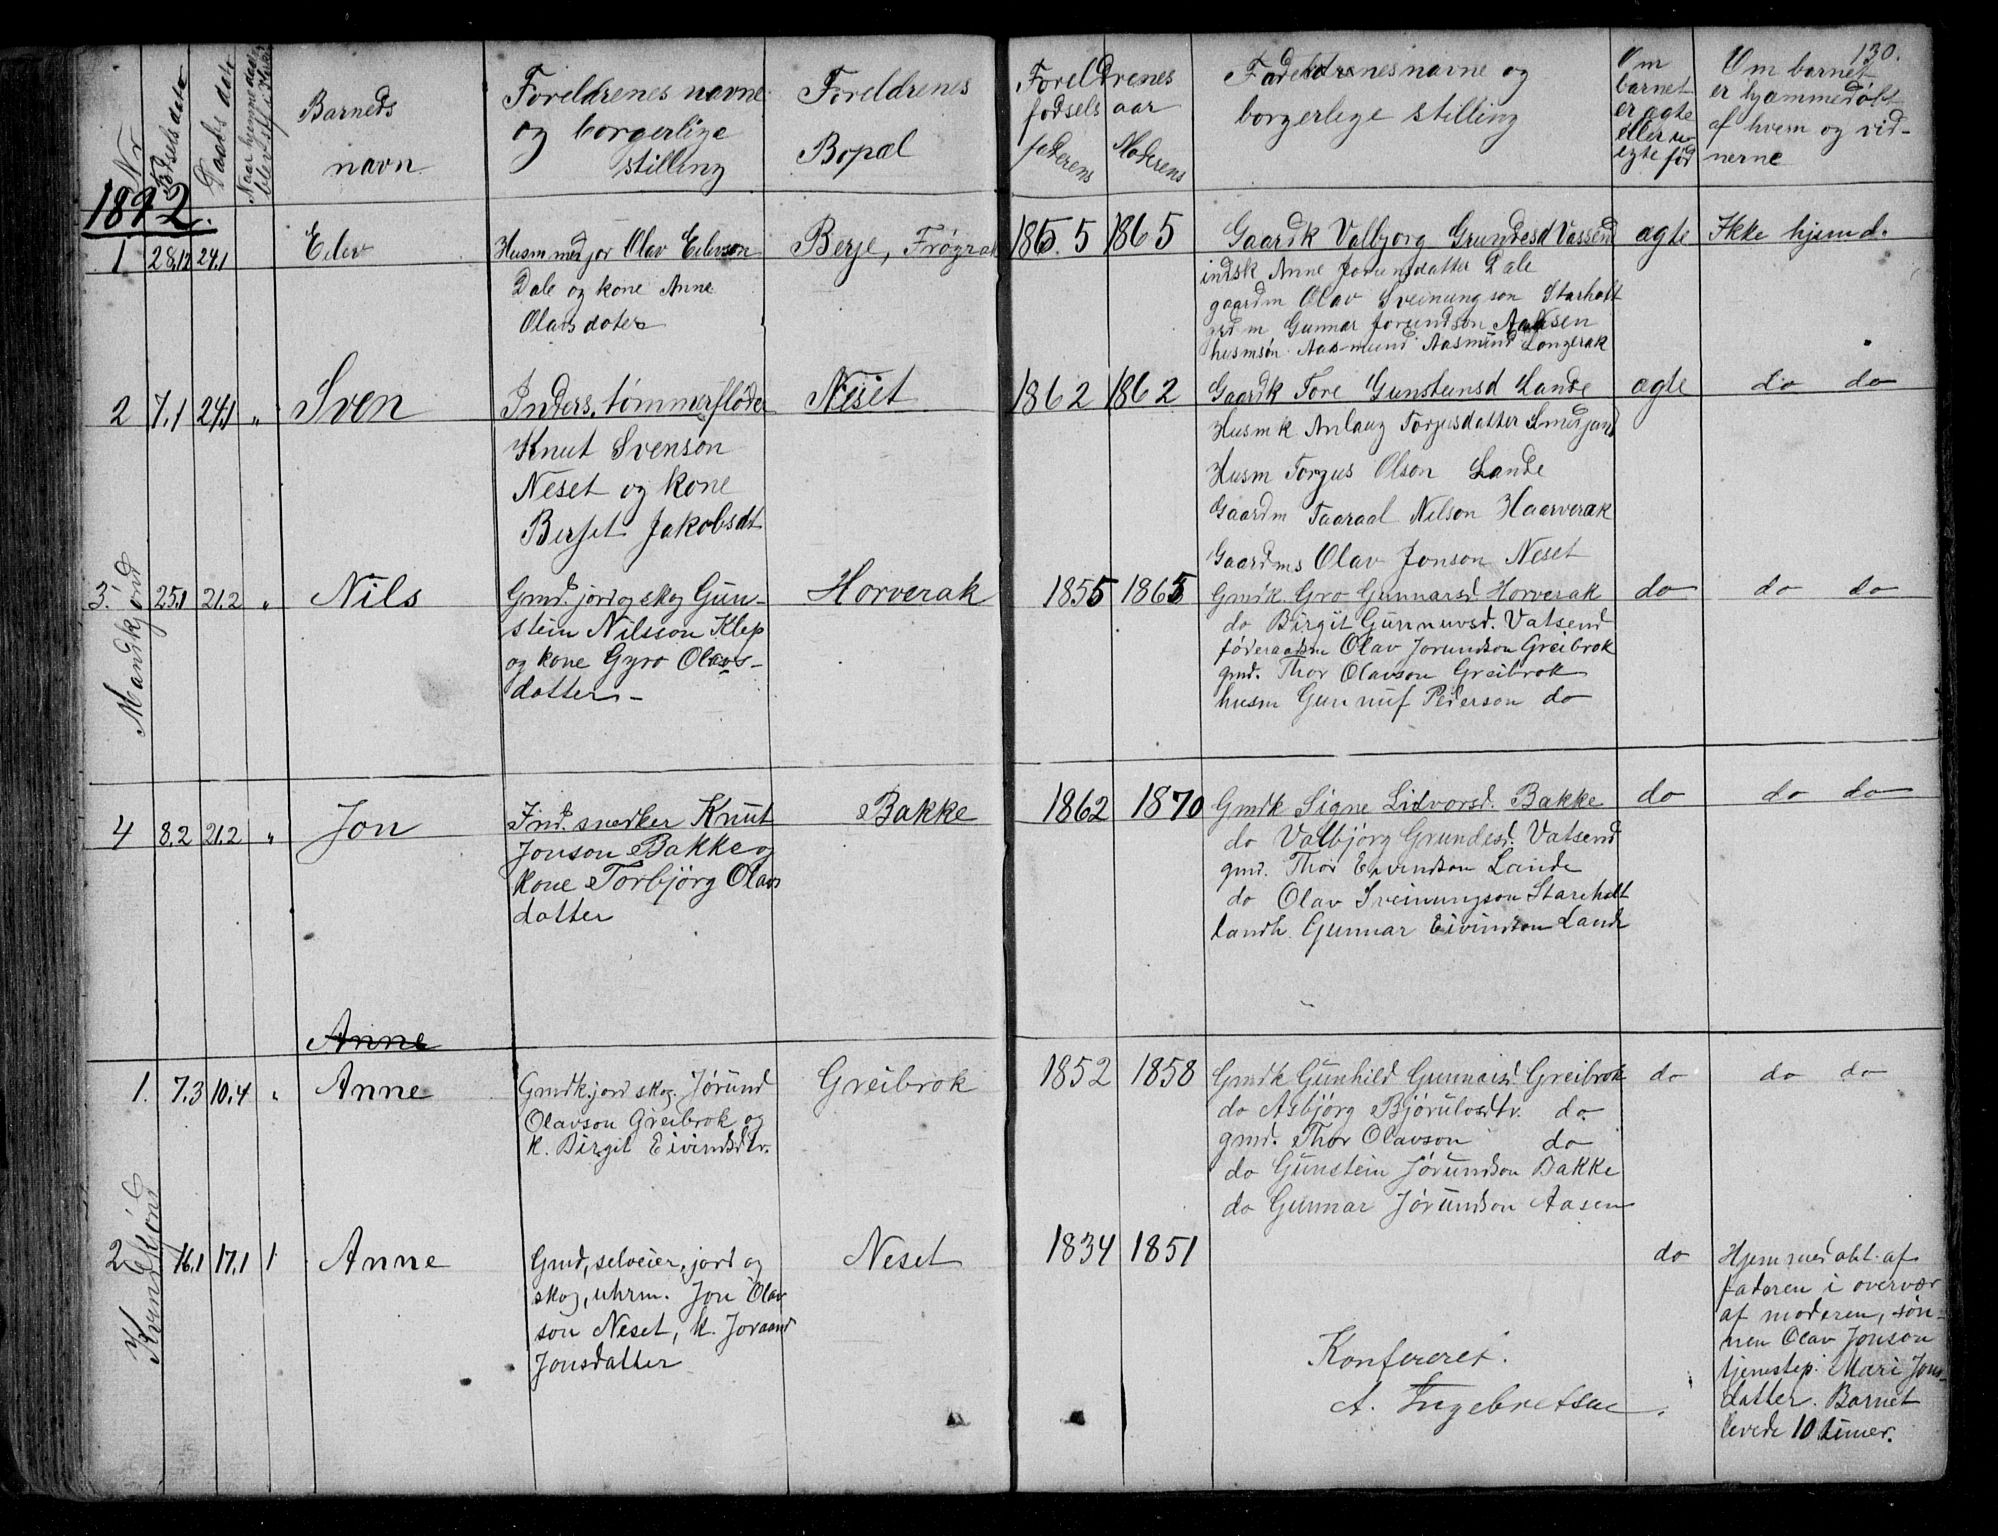 130.
Nr
Fødsels dato
Daabs dato
Naar hjemmedøbt
Barneds
navn
Foreldrenes navne
og borgerlige
stilling
Foreldrenes
Bopæl
Foreldrenes
fødsels aar
faderens Moderens
Fadderenes navne og
borgerlige stilling
Om
barnet
er ægte
eller u-
egte fød
Om barnet
er hjæmmedøbt
af hvem og vid-
nerne
1892.
Mandkjønd
1 28.12 24.1
Eilev
Husm med jor Olav Eilevson
Dale og kone Anne
Olavs dater
Berje, Frøgrak
1865 1865
Gaardk Valbjorg Grundesd Vassend
indsk Anne Jorunsdatter Dale
gaardm Olav Sveinungson Starholt
grd m Gunnar Jorundson Aasen
husmsøn Aasmund Aasmund Longerak
ægte
Ikke hjemd.
2 7.1 24.1 "
Sven
Inders, tømmerfløder
Knut Svenson
Neset og kone
Berjet Jakobsdt
Neset
1862 1862
Gaardk Tore Gunstensd Lande
Husmk Anlaug Torjusdatter
Husm Torgus Olson Lande
Gaardm Taaraal Nilson Haarverak
Gaardms Olav Jonson Neset
ægte
do do
3. 25.1 21.2 "
Nils
Gmd. jord og skog Gun-
stein Nilsson Klep
og kone Gyro Olavs-
datter -
Horverak
1855 1865
Gmdk. Gro Gunnarsd. Horverak
do Birgit Gunnuvsd. Vatsend
føderaadsm Olav Jorundson Greibrok
gmd. Thor Olavson Greibrok
husm Gunnuf Pederson do
do
do do
4 8.2 21.2 "
Jon
Ind. snedker Knut
Jonson Bakke og
kone Torbjörg Olavs
datter
Bakke
1862 1870
Gmdk Signe Lidvorsd. Bakke
do Valbjörg Grundesd. Vatsend
gmd. Thor Eivindson Lande
do Olav Sveinungson Stareholt
landh. Gunnar Eivindson Lande
do
do do
Kvindekjønd
Anne
1. 7.3 10.4 "
Anne
Gmdk. jord skog. Jørund
Olavson Greibrok og
k. Birgit Eivindsdtr.
Greibrok
1852 1858
Gmdk Gunhild Gunnarsd Greibrok
do Asbjörg Bjørulvsdtr. do
gmd. Thor Olavson do
do Gunstein Jørundson Bakke
do Gunnar Jørundson Aasen
do
do do
2 16.1 17.1 1
Anne
Gmd, selveier, jord og
skog, uhrm. Jon Olav
son Neset, k. Joraand
Jonsdatter
Neset
1834 1851
do
Hjemmedøbt af
faderen i overvær
af moderen, søn-
nen Olav Jonson
tjenestep. Mari Jons-
datter. Barnet
levede 10 timer.
Konfereret.
A. Ingebretsen